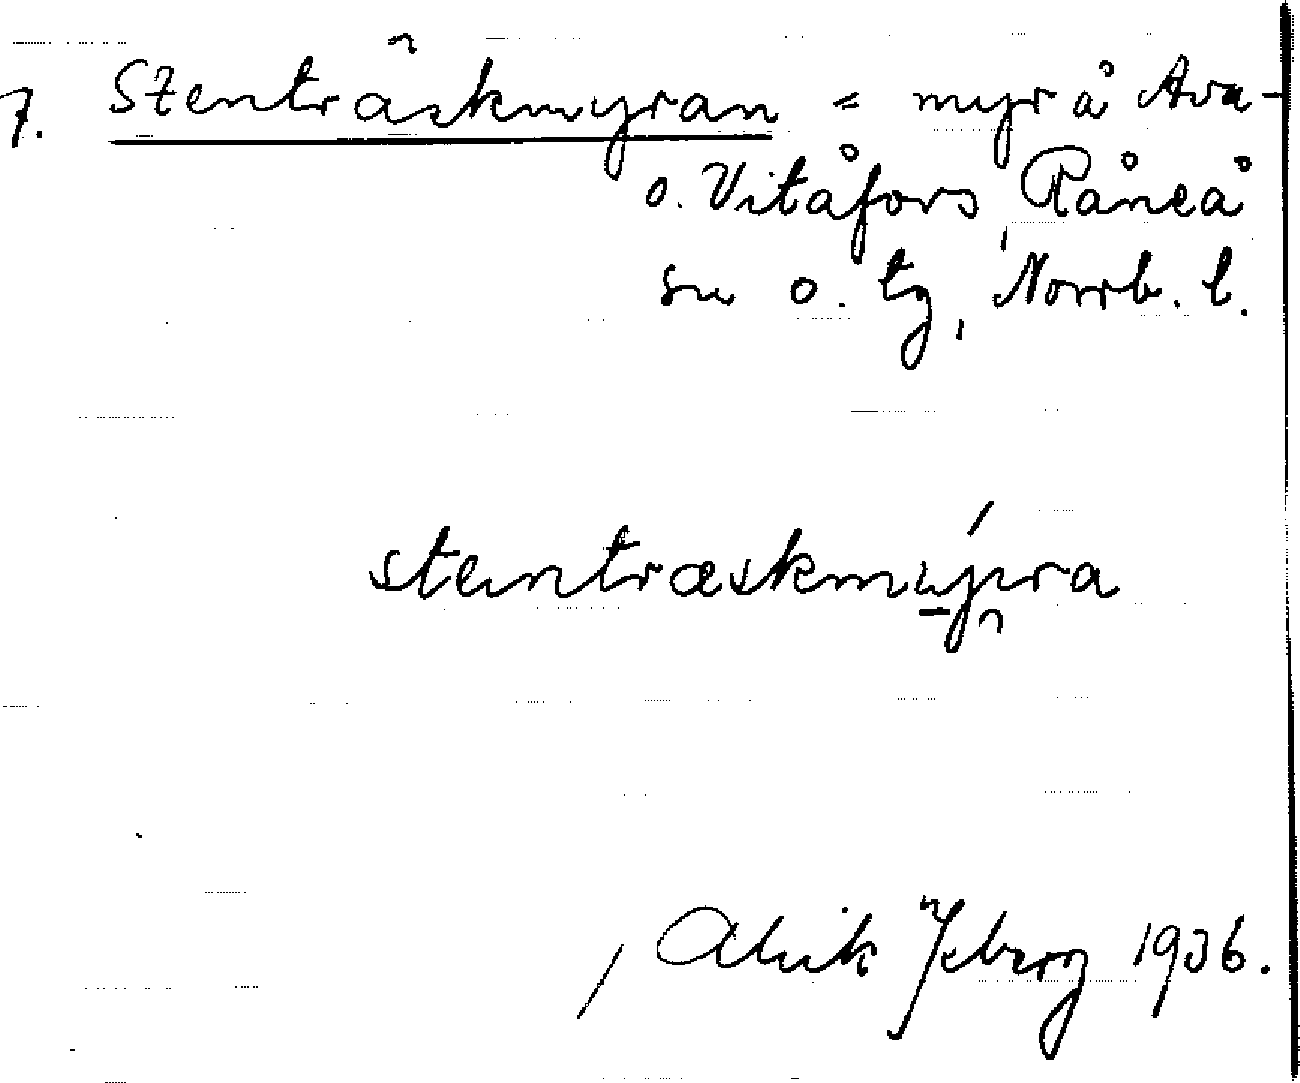 7. Stenträskmyran = myr å Ava-
o. Vitåfors, Råneå
sn o. tg, Norrb. l.
steintræskmyra
1936.